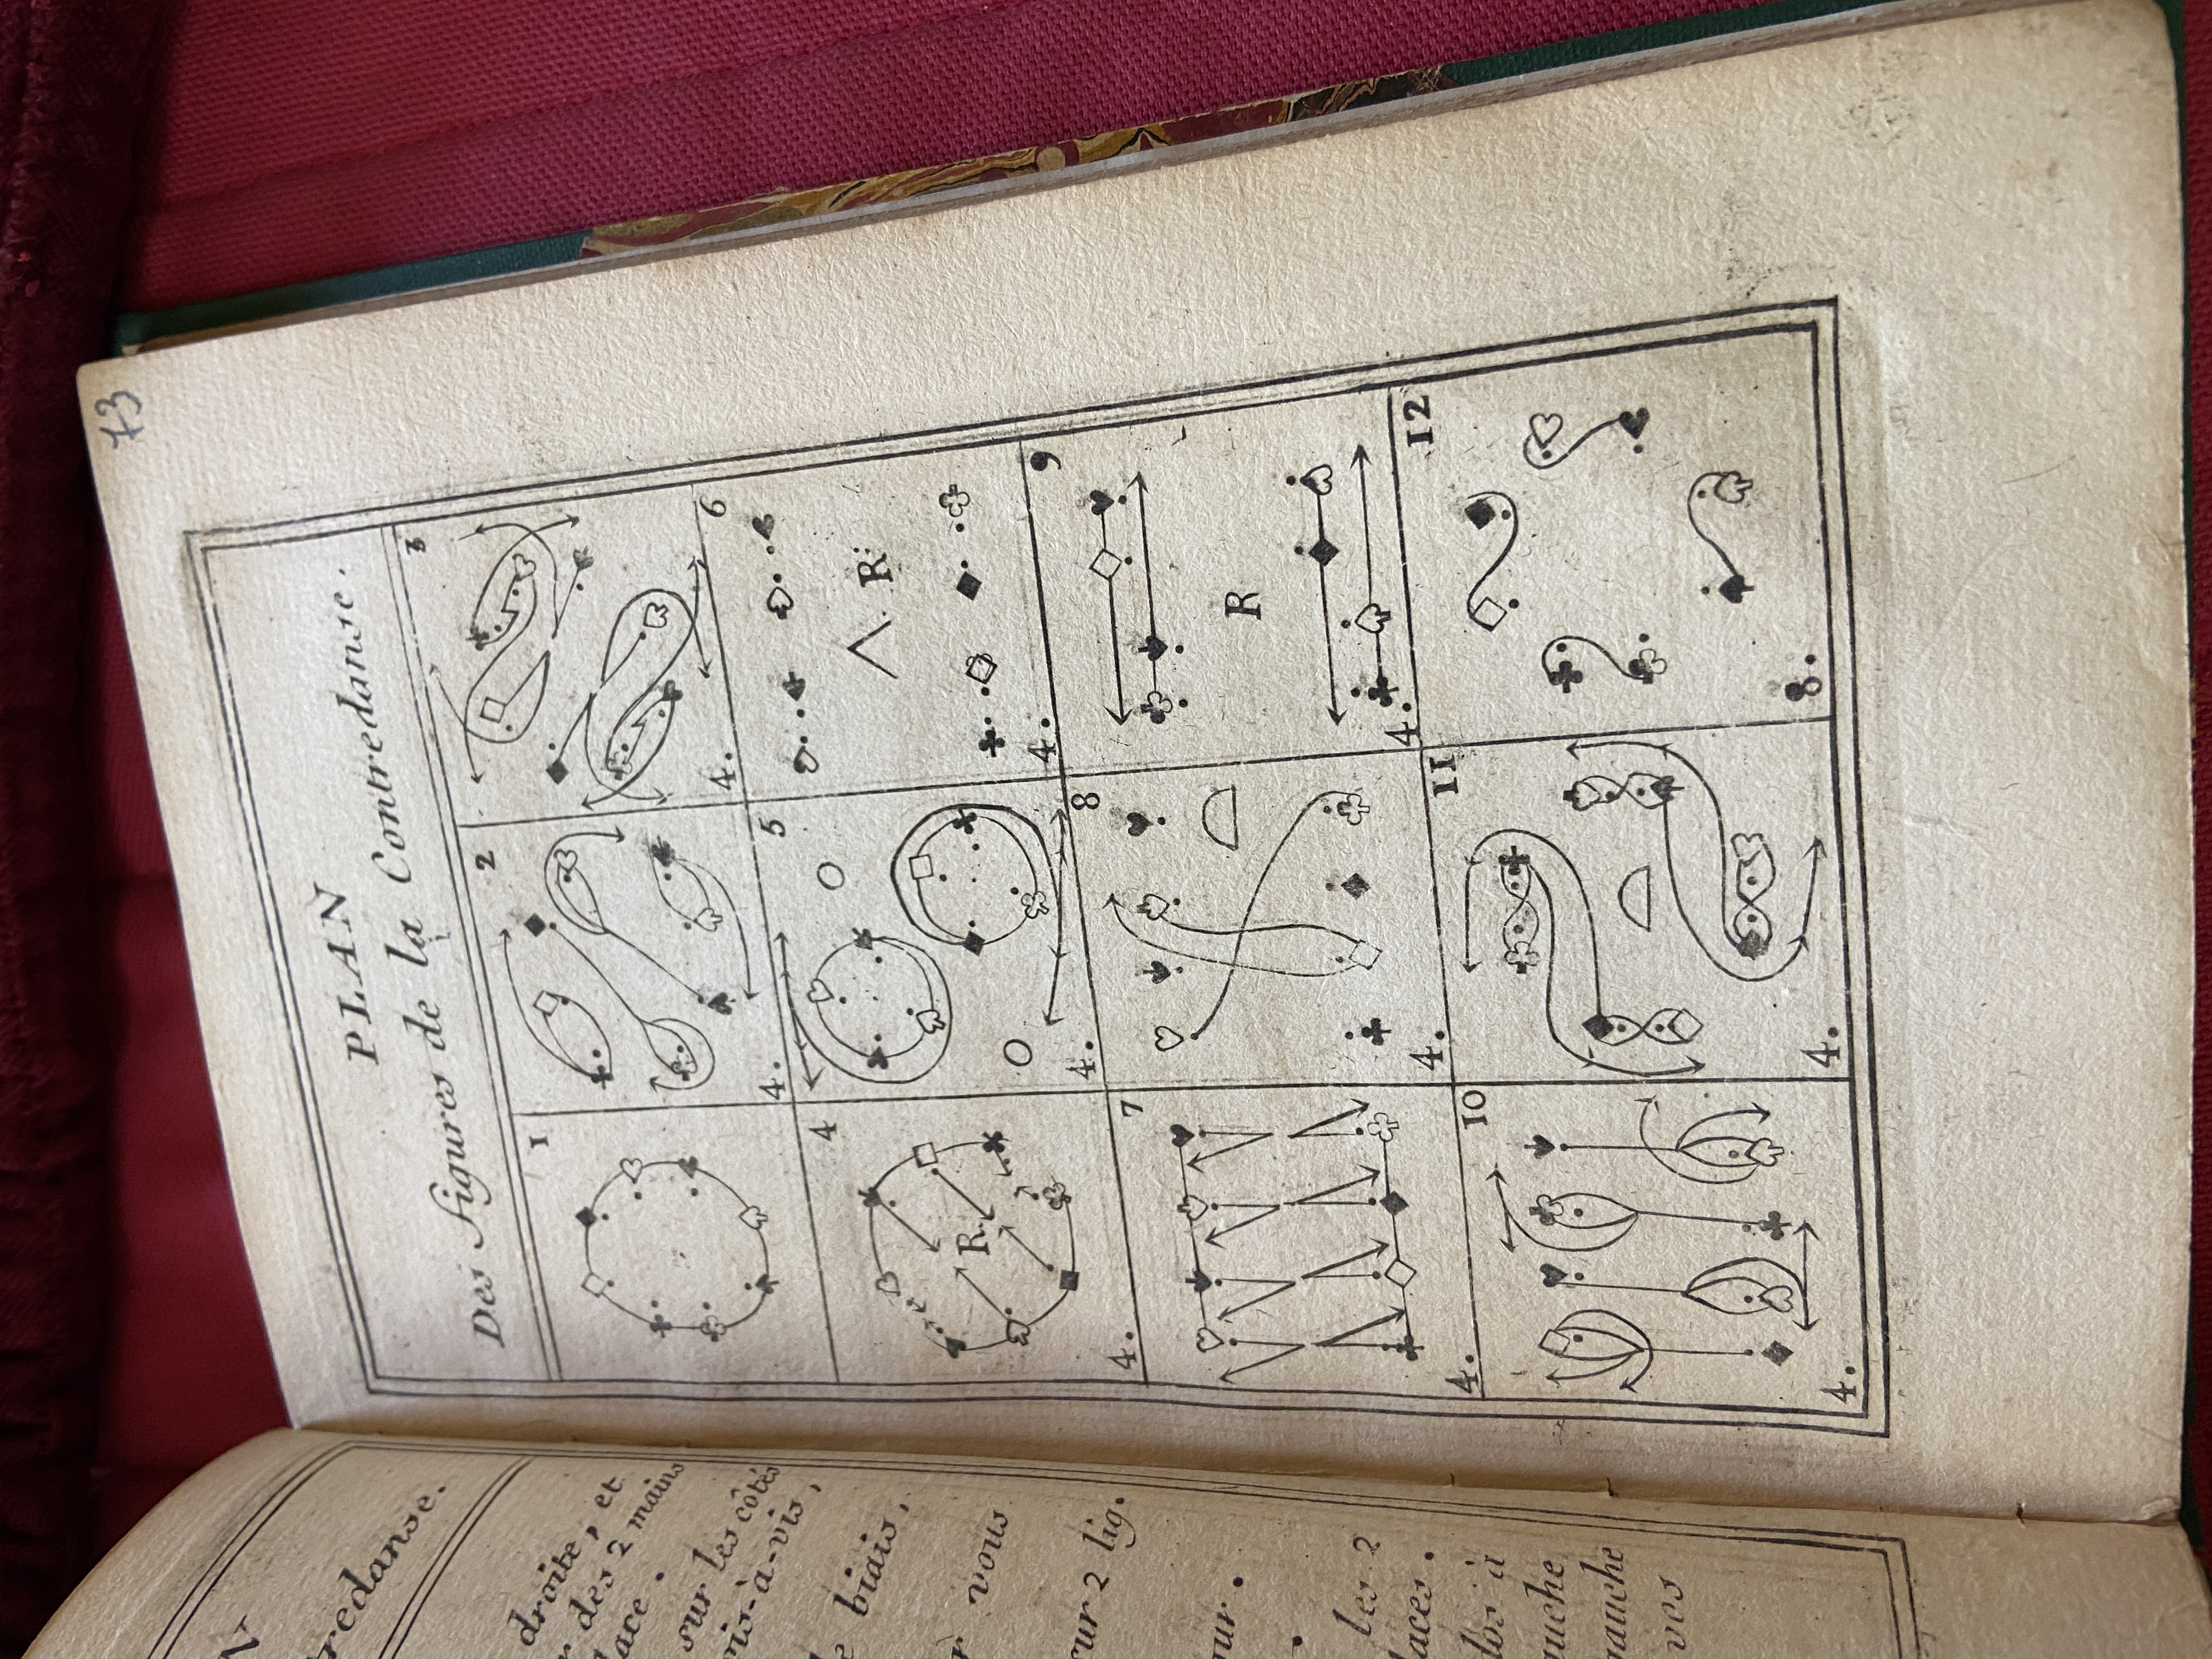 73
PLAN
Des Figures de la Contredanse.
1 2 3
4. 4.
4 5 6
R.
R.
4. 4. 4.
7 8 9
R
4. 4. 4.
10 11 12
4. 4. 8.
redanse.
droite, et
des 2 mains
lace.
sur les côtés
vis-à-vis,
biais,
vous
sur 2 lig.
our.
les 2
laces.
dos à
auche
gauche
vos